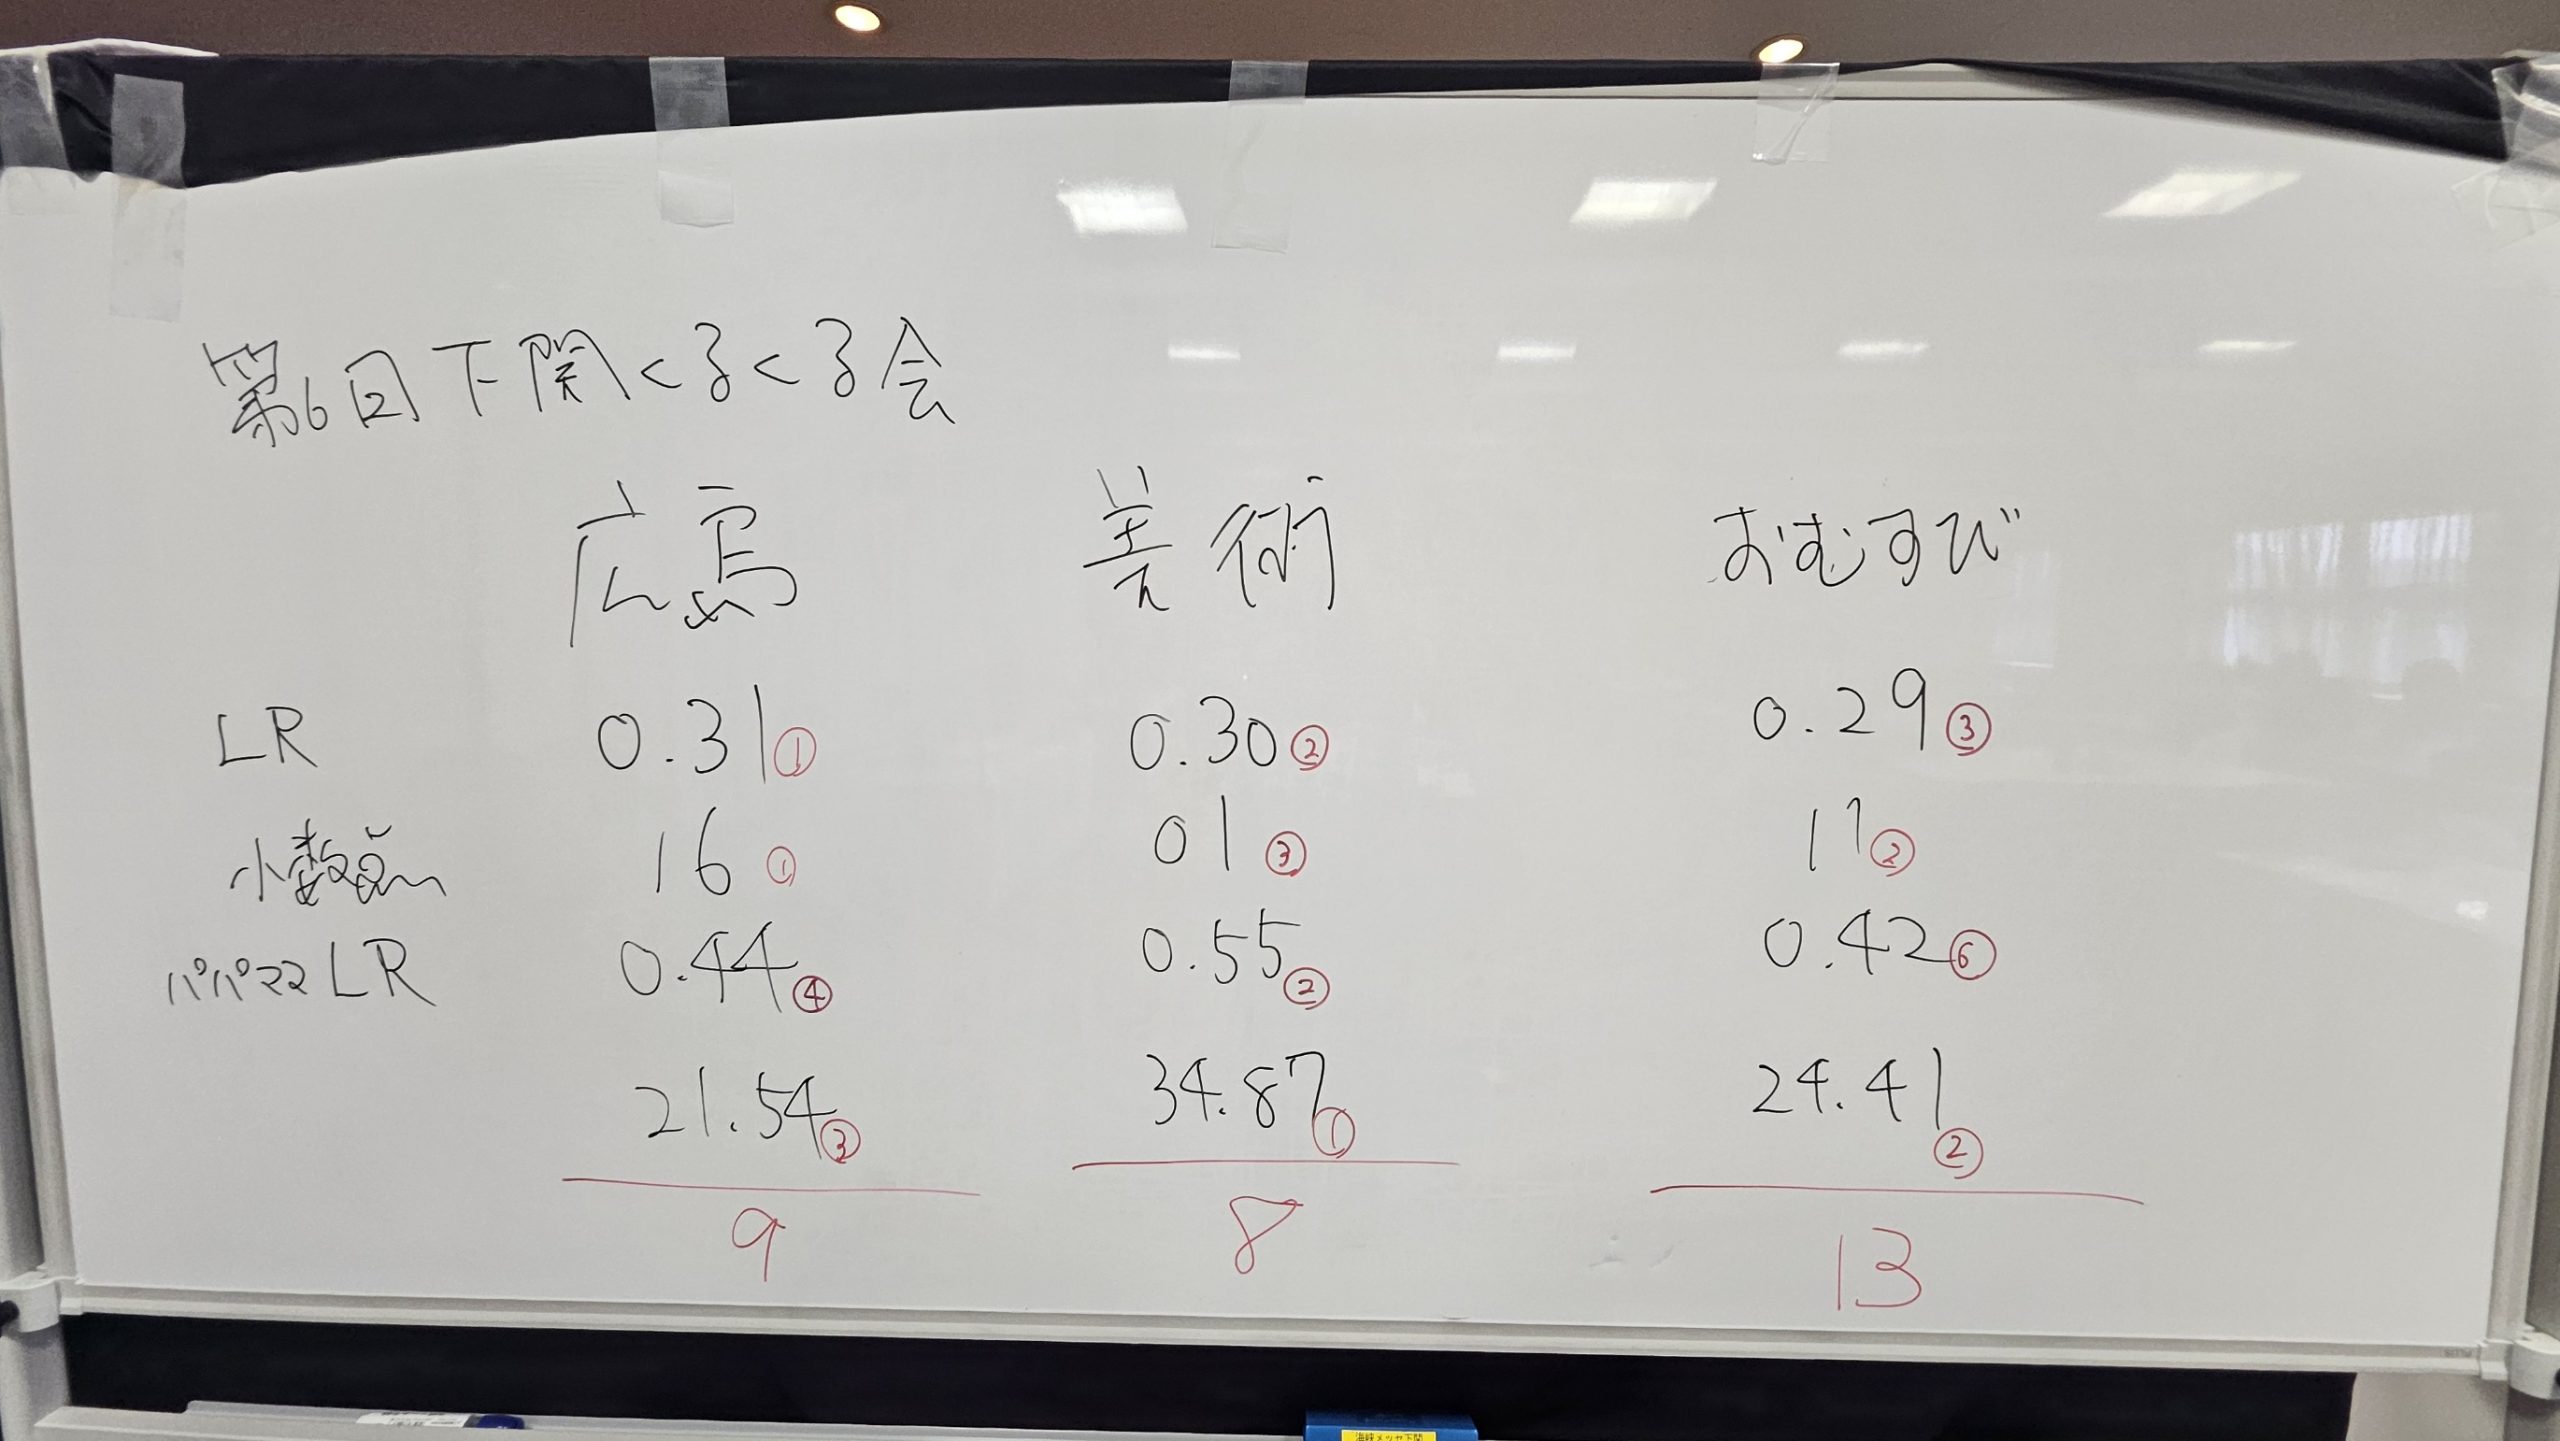 第6回下関くるくる会
広島 美術 おむすび
LR 0.31① 0.30② 0.29③
小数 16① 01③ 11②
パパママLR 0.44④ 0.55② 0.42⑥
21.54③ 34.87① 24.41②
9 8 13
海峡メッセ下関